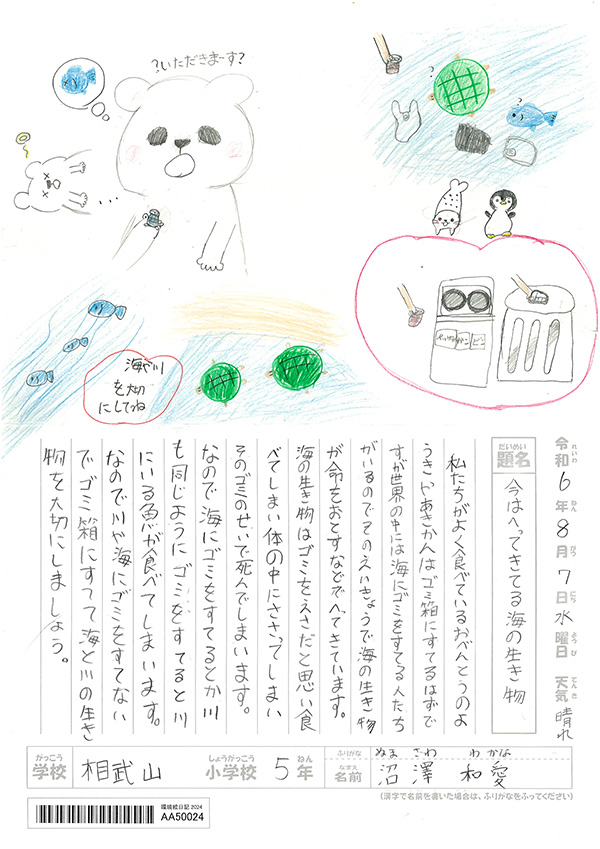 ?いただきまーす?
?
?
…
ペットボトル カン ビン
海や川
を大切
にしてね
令和6年8月7日水曜日 天気 晴れ
れいわ ねん がつ にち ようび てんき
だいめい
題名 今はへってきてる海の生き物
私たちがよく食べているおべんとうのよ
うきやあきかんはゴミ箱にすてるはずで
すが世界の中には海にゴミをすてる人たち
がいるのでそのえいきょうで海の生き物
が命をおとすなどでへってきています。
海の生き物はゴミをえさだと思い食
べてしまい体の中にささってしまい
そのゴミのせいで死んでしまいます。
なので海にゴミをすてるとか川
も同じようにゴミをすてると川
にいる魚が食べてしまいます。
なので川や海にゴミをすてない
でゴミ箱にすてて海と川の生き
物を大切にしましょう。
がっこう しょうがっこう ねん
学校 相武山 小学校 5年
ふりがな ぬま さわ わかな
なまえ
名前 沼澤 和愛
(漢字で名前を書いた場合は、ふりがなをふってください)
環境絵日記 2024
AA50024